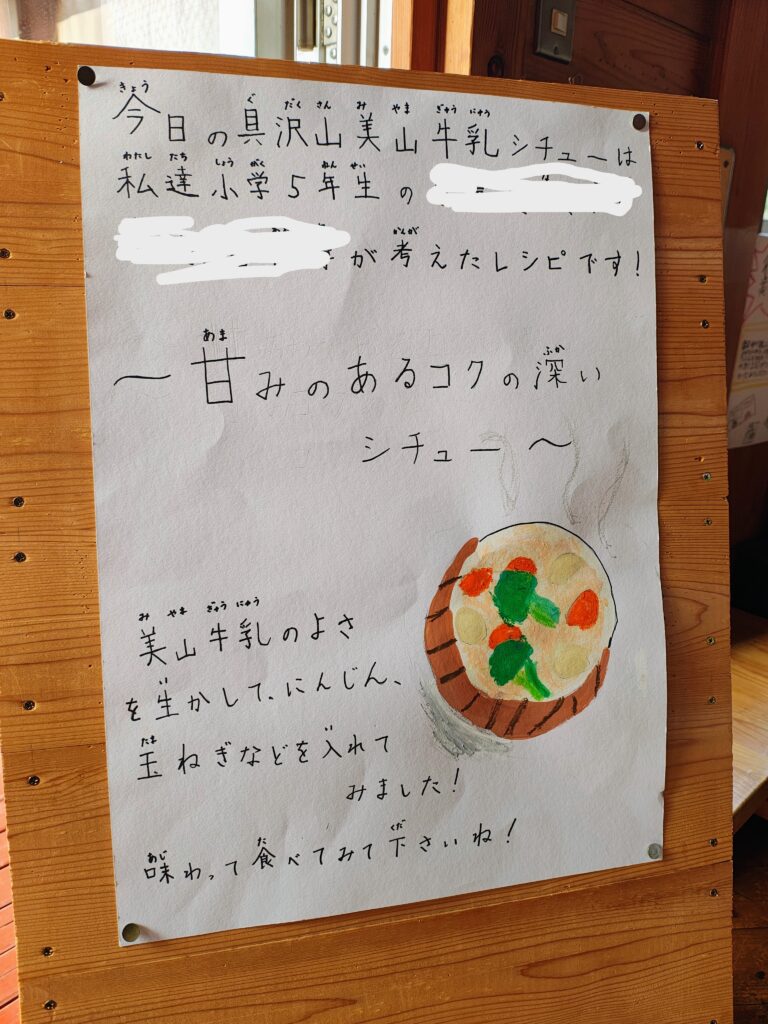 今日の具沢山美山牛乳シチューは
私達小学5年生の
が考えたレシピです!
〜甘みのあるコクの深い
シチュー〜
美山牛乳のよさ
を生かして、にんじん、
玉ねぎなどを入れて
みました!
味わって食べてみて下さいね!